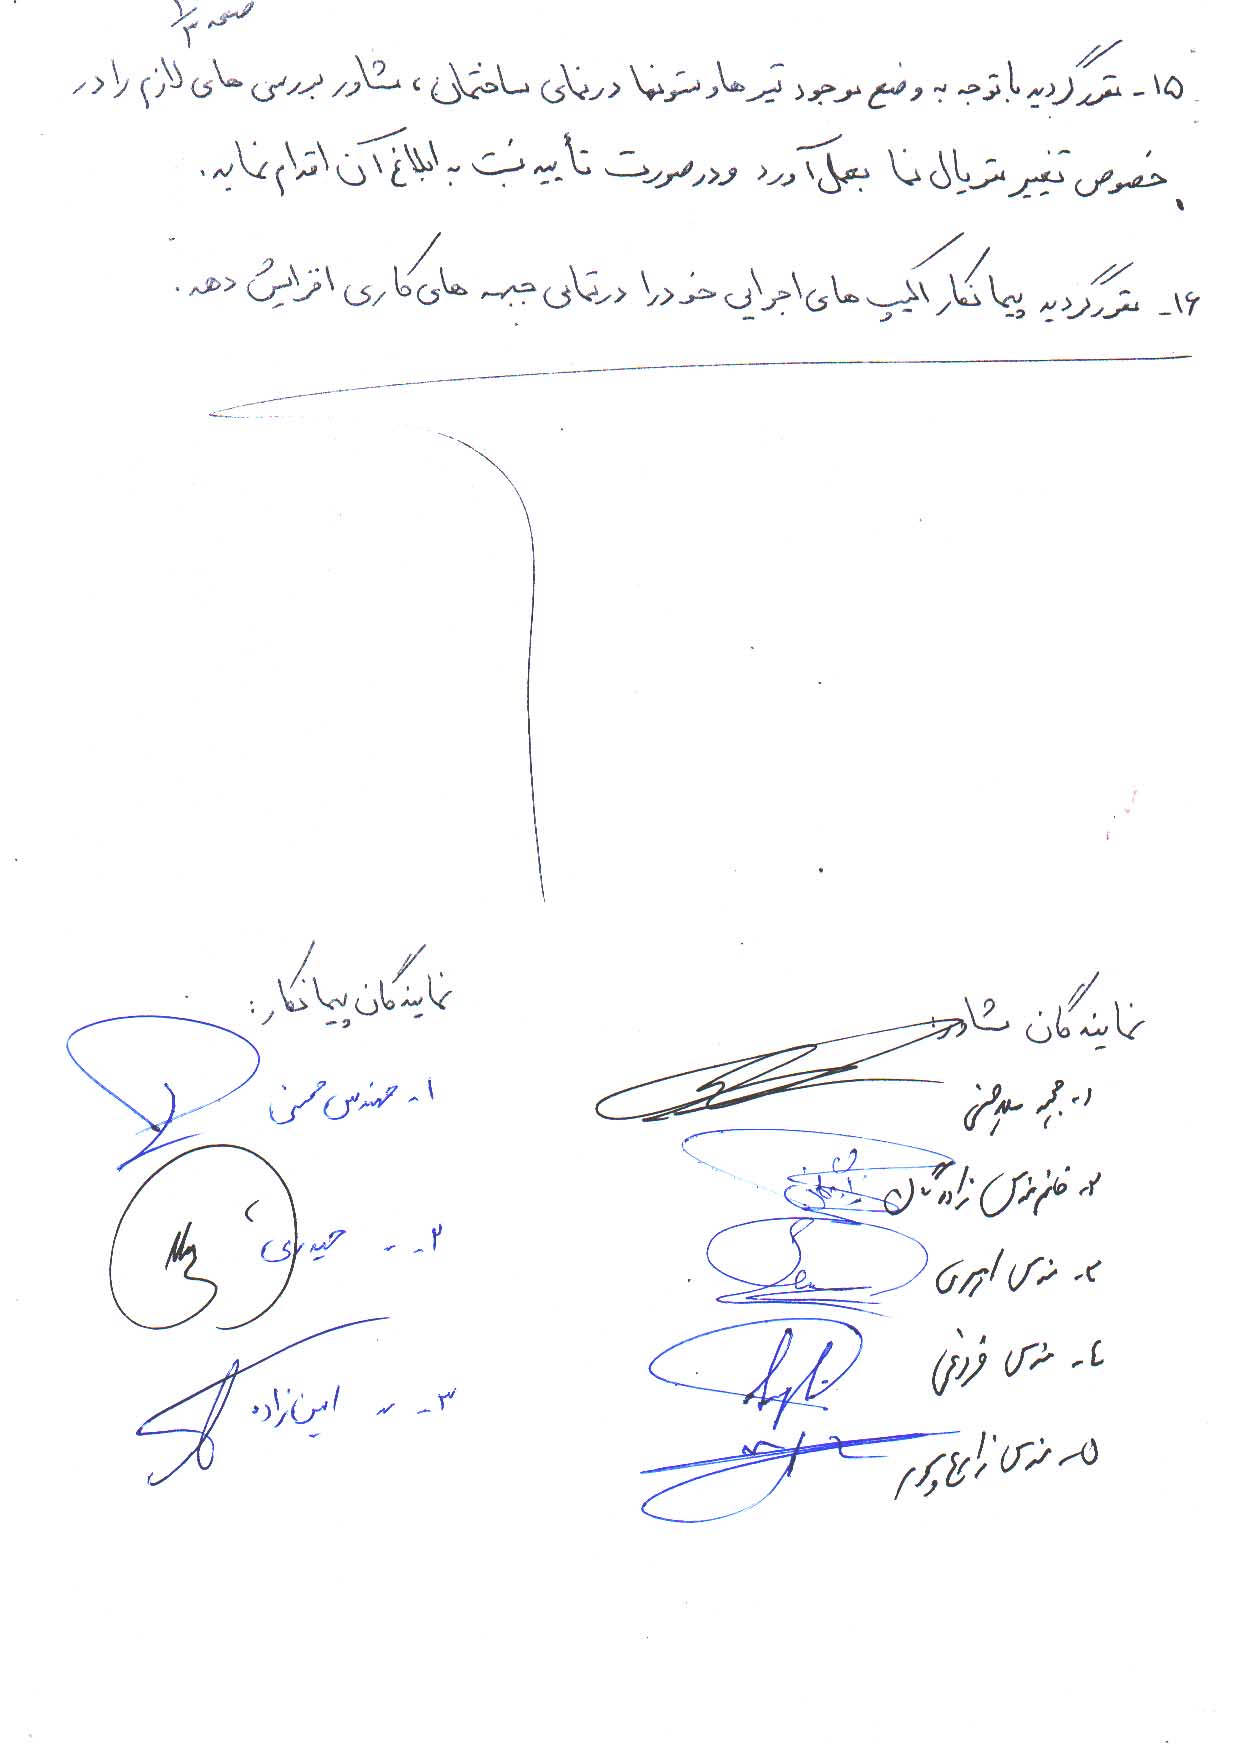 صفحه ۳
۱۵- مقرر گردید با توجه به وضع موجود تیرها و ستونها در نمای ساختمان، مشاور بررسی های لازم را در
خصوص تغییر متریال نما بعمل آورد و در صورت تأیید نسبت به ابلاغ آن اقدام نماید.
۱۶- مقرر گردید پیمانکار اکیپ های اجرایی خود را در تمامی جبهه های کاری افزایش دهد.
نمایندگان مشاور:
۲- خانم مهندس
۳- مهندس امیری
۴- مهندس
۵- مهندس
نمایندگان پیمانکار:
۱- مهندس حسنی
۲- ~ حیدری
۳- ~ امین زاده